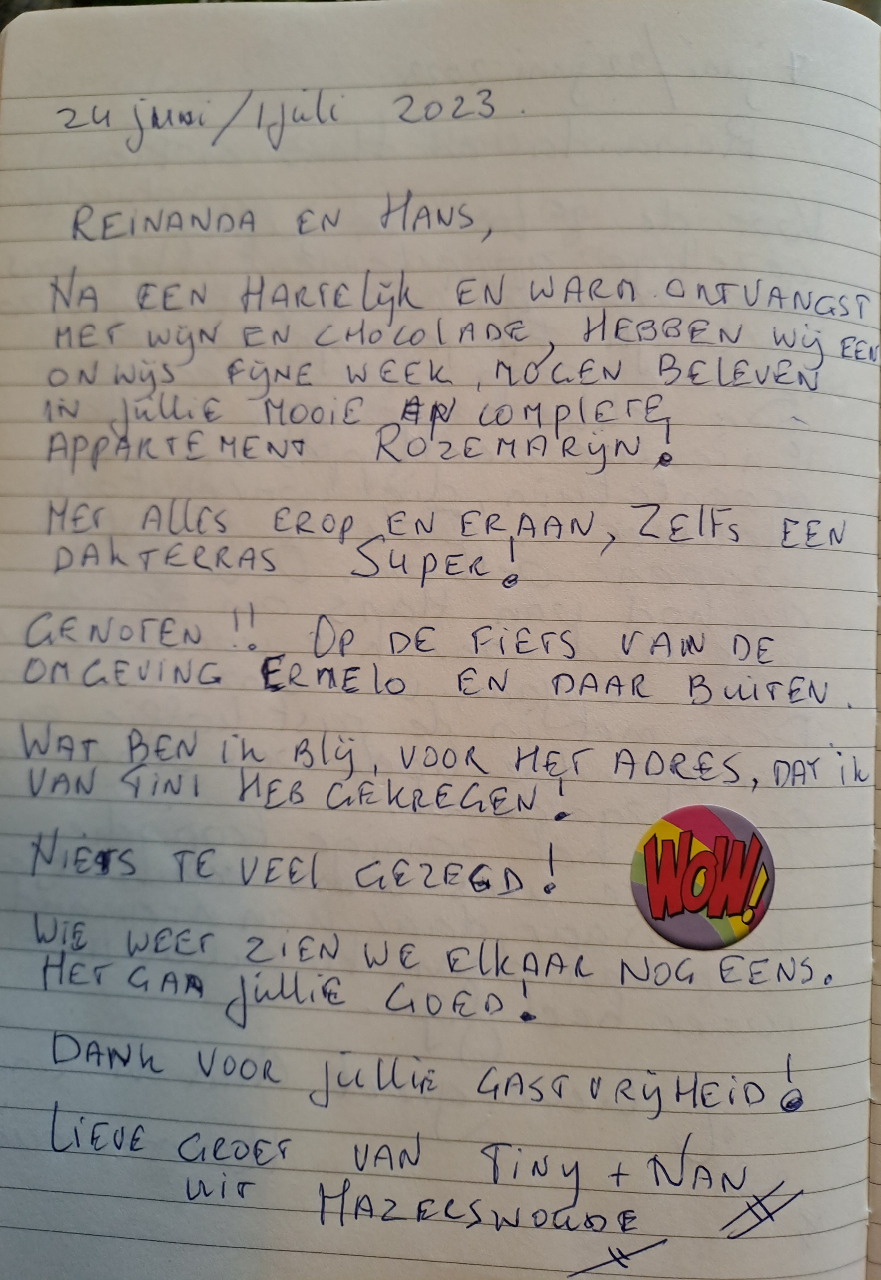 24 juni / 1 juli 2023.
REINANDA EN HANS,
NA EEN HARTElijk EN WARM ONTVANGST
MET WijN EN CHOCOlADE, HEBBEN Wij EEN
ONWijS FijNE WEEK, MOGEN BELEVEN
IN jullIE MOOIE EN COMPLETE
APPARTEMENT ROZEMARijN!
MET AllES EROP EN ERAAN, ZElFS EEN
DAKTERRAS SUPER!
GENOTEN!! OP DE FIETS VAN DE
OMGEVING ERMElO EN DAAR BUITEN.
WAT BEN ik Blij, VOOR HET ADRES, DAT ik
VAN TINI HEB GEKREGEN!
NIETS TE VEEl GEZEGD!
WOW!
WIE WEET ZIEN WE ElkAAR NOG EENS.
HET GAA jullIE GOED!
DANK VOOR jullIE GASTVRijHEID!
LIEVE GROET VAN TINY + NAN
UIT HAZERSWOUDE